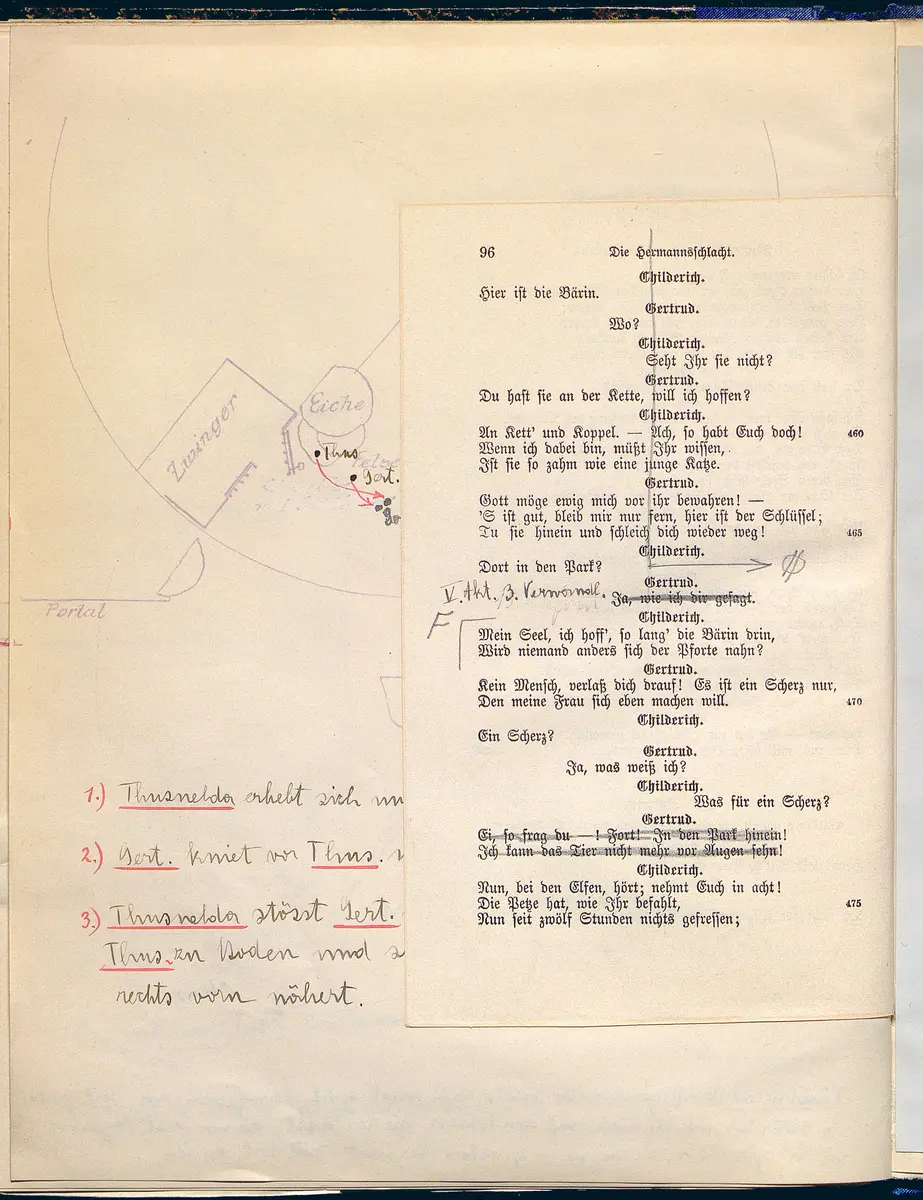 Zwinger
Eiche
Thus
Gert.
Portal
1.) Thusnelda erhebt sich
2.) Gert. kniet vor Thus.
3.) Thusnelda stösst Gert.
Thus. zu Boden und
rechts vorn nähert.
96 Die Hermannsschlacht.
Childerich.
Hier ist die Bärin.
Gertrud.
Wo?
Childerich.
Seht Ihr sie nicht?
Gertrud.
Du hast sie an der Kette, will ich hoffen?
Childerich.
An Kett' und Koppel. — Ach, so habt Euch doch! 460
Wenn ich dabei bin, müßt Ihr wissen,
Ist sie so zahm wie eine junge Katze.
Gertrud.
Gott möge ewig mich vor ihr bewahren! —
'S ist gut, bleib mir nur fern, hier ist der Schlüssel;
Tu sie hinein und schleich dich wieder weg! 465
Childerich.
Dort in den Park?
Gertrud.
V. Akt. 3. Verwandl.
Ja, wie ich dir gesagt.
Childerich.
F
Mein Seel, ich hoff', so lang' die Bärin drin,
Wird niemand anders sich der Pforte nahn?
Gertrud.
Kein Mensch, verlaß dich drauf! Es ist ein Scherz nur,
Den meine Frau sich eben machen will. 470
Childerich.
Ein Scherz?
Gertrud.
Ja, was weiß ich?
Childerich.
Was für ein Scherz?
Gertrud.
Ei, so frag du —! Fort! In den Park hinein!
Ich kann das Tier nicht mehr vor Augen sehn!
Childerich.
Nun, bei den Elfen, hört; nehmt Euch in acht!
Die Petze hat, wie Ihr befahlt, 475
Nun seit zwölf Stunden nichts gefressen;